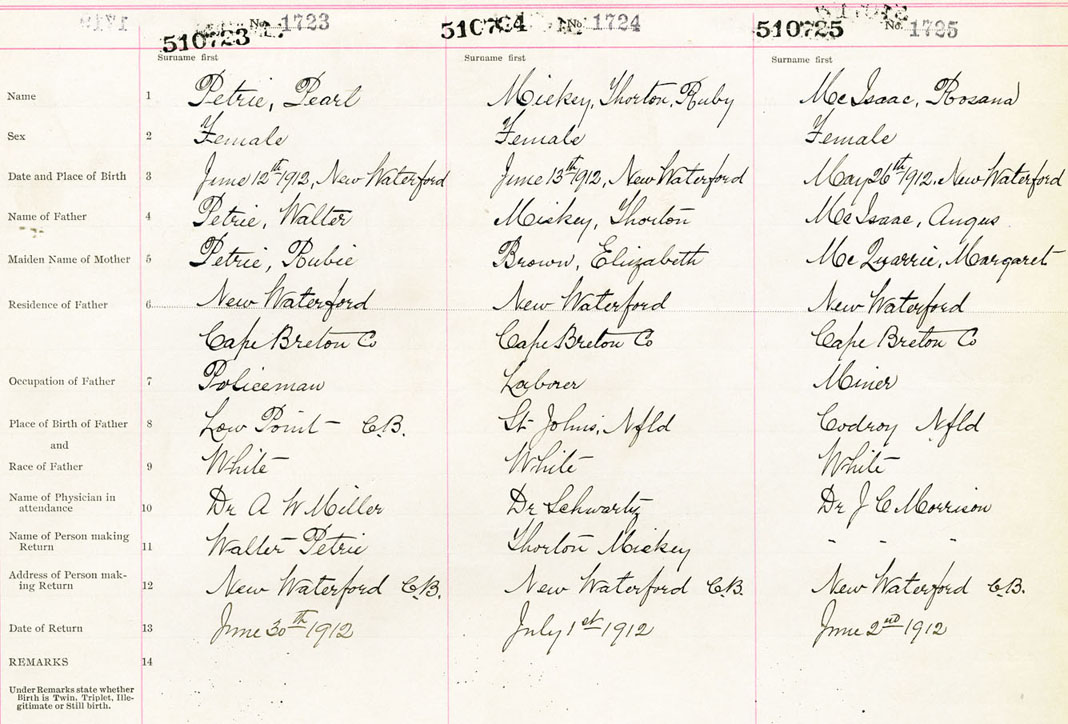 No. 1723 No. 1724 No. 1725
510723 510724 510725
Surname first Surname first Surname first
Name 1 Petrie, Pearl Mickey, Thorton, Ruby McIsaac, Rosana
Sex 2 Female Female Female
Date and Place of Birth 3 June 12th 1912, New Waterford June 13th 1912, New Waterford May 26th 1912. New Waterford
Name of Father 4 Petrie, Walter Mickey, Thorton McIsaac, Angus
Maiden Name of Mother 5 Petrie, Rubie Brown, Elizabeth McQuarrie, Margaret
Residence of Father 6 New Waterford New Waterford New Waterford
Cape Breton Co Cape Breton Co Cape Breton Co
Occupation of Father 7 Policeman Laborer Miner
Place of Birth of Father 8 Low Point - C.B. St Johns, Nfld Codroy Nfld
and
Race of Father 9 White White White
Name of Physician in
attendance 10 Dr A W Miller Dr Schwartz Dr J C Morrison
Name of Person making
Return 11 Walter Petrie Thorton Mickey " " "
Address of Person mak-
ing Return 12 New Waterford C.B. New Waterford C.B. New Waterford C.B.
Date of Return 13 June 30th 1912 July 1st 1912 June 2nd 1912
REMARKS 14
Under Remarks state whether
Birth is Twin, Triplet, Ille-
gitimate or Still birth.